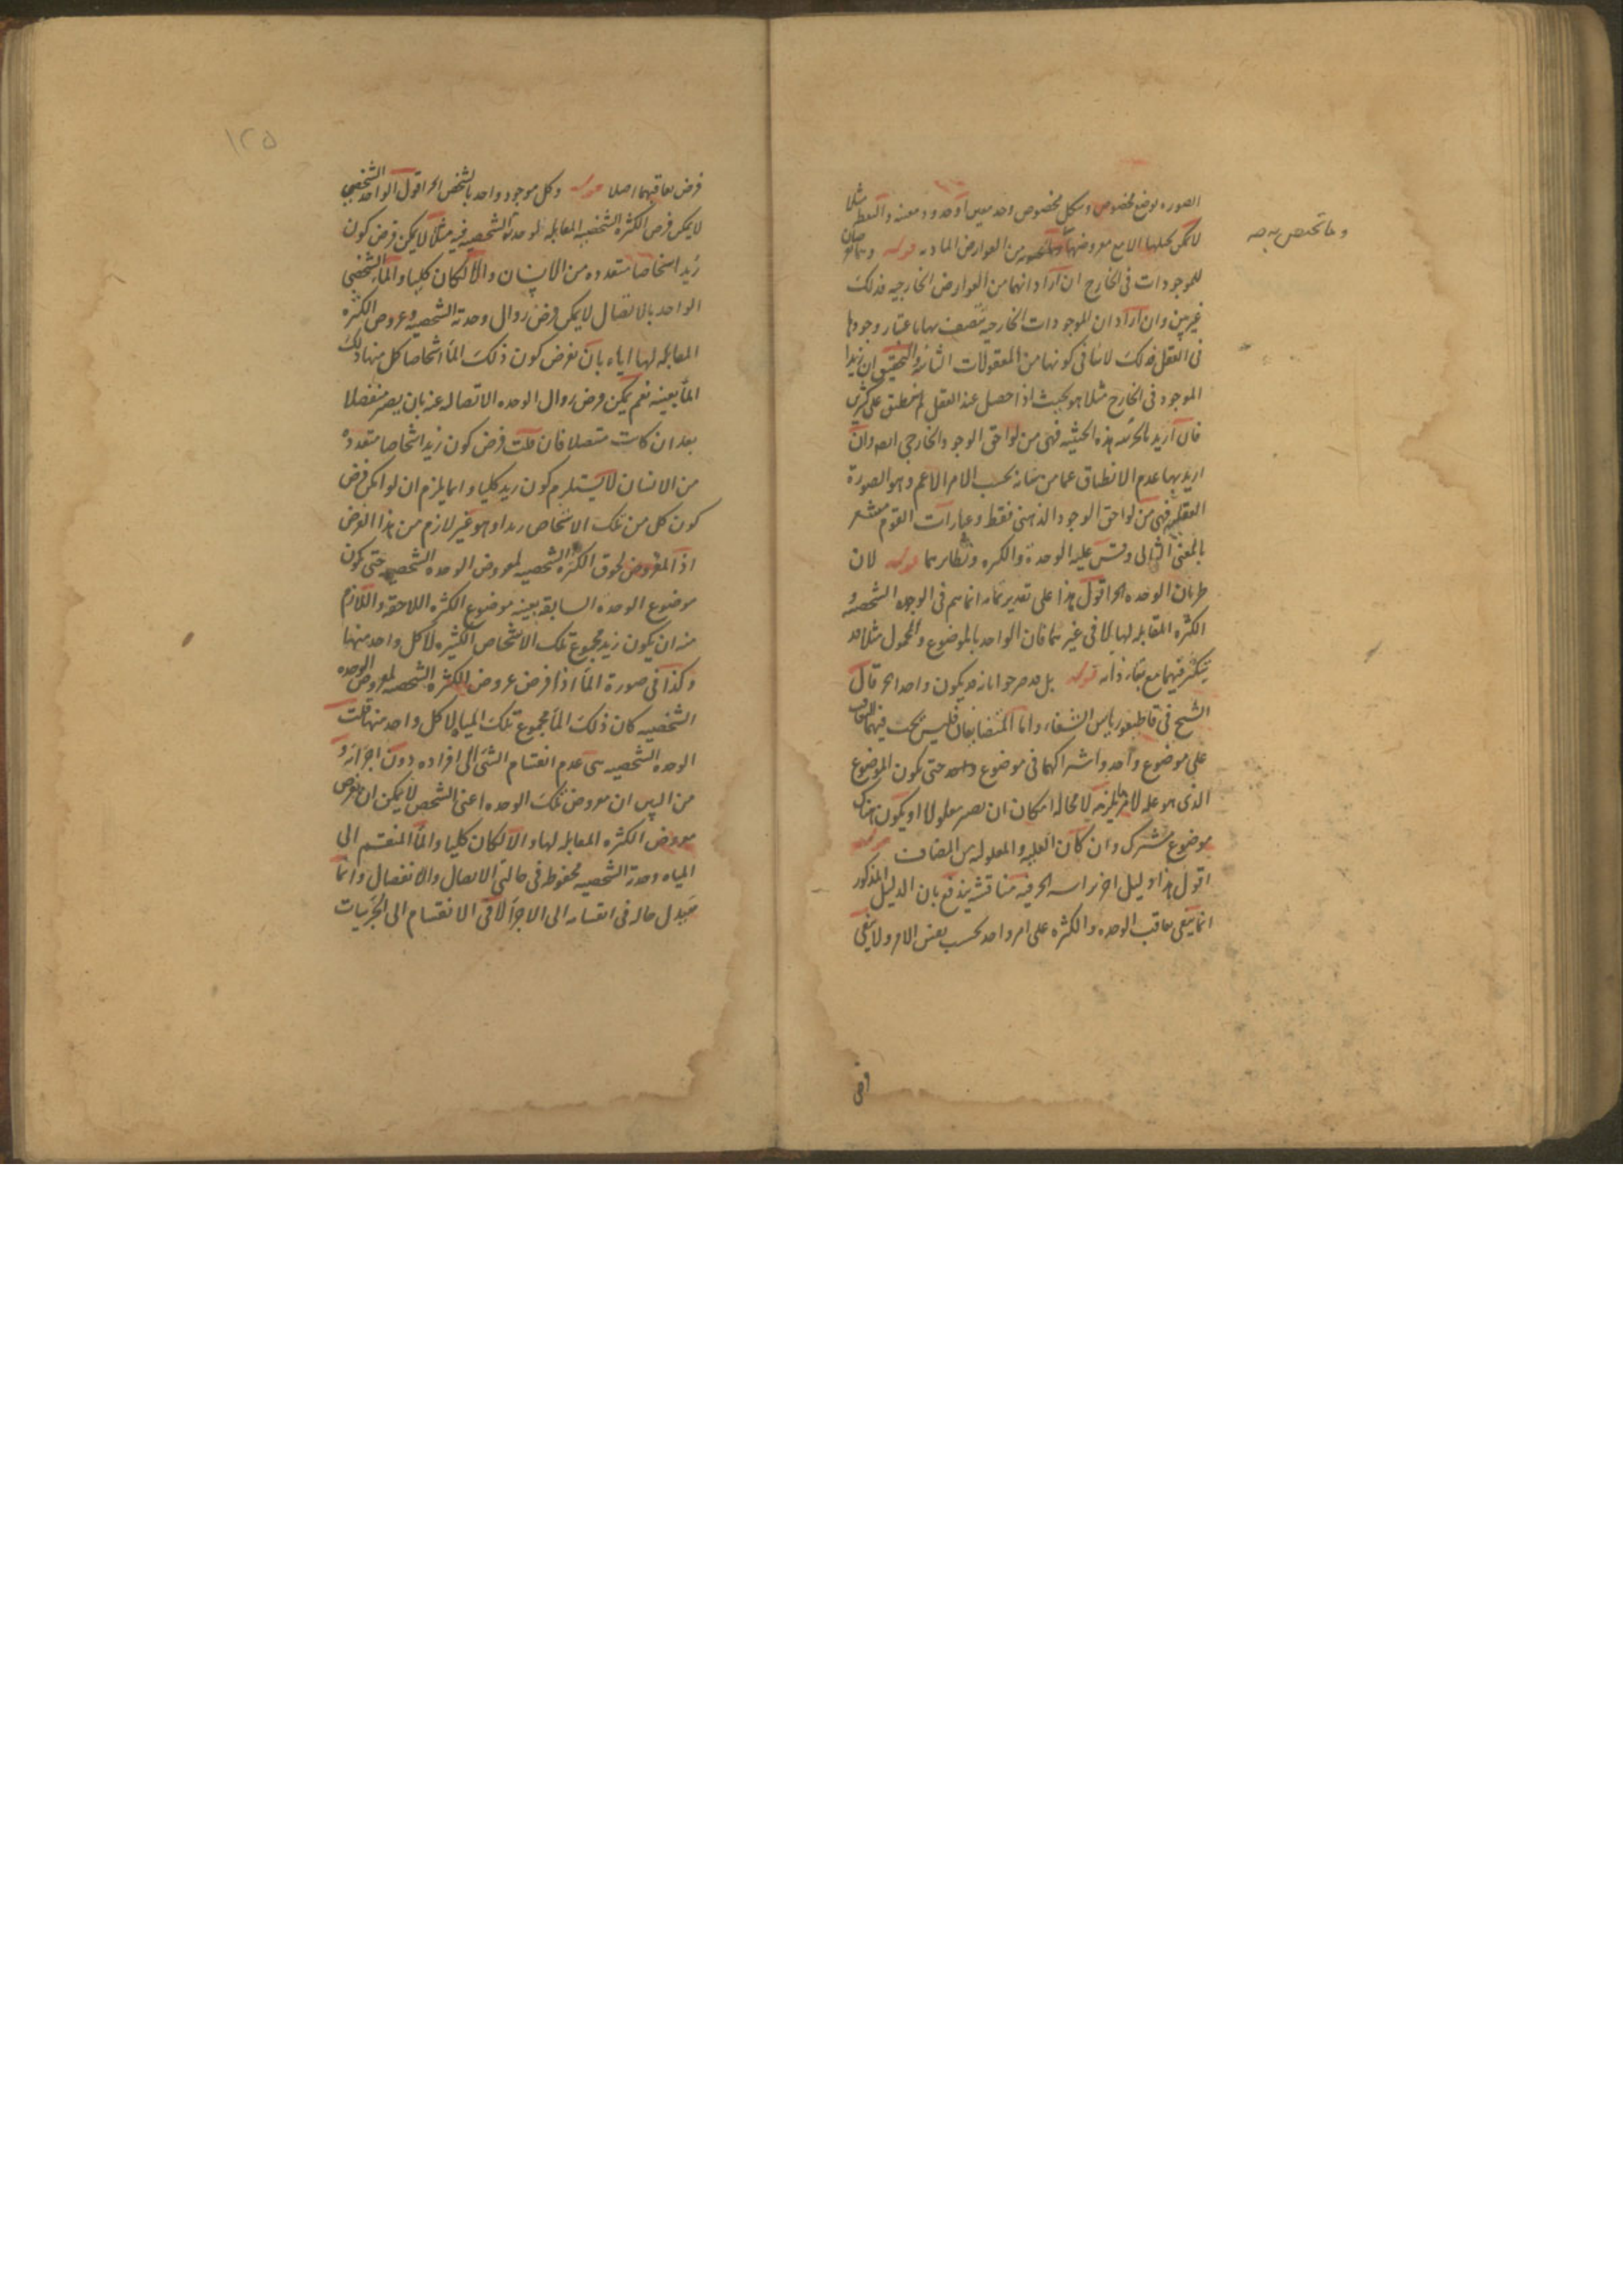 الصوره بوضع مخصوص وشكل مخصوص وحد معين او حدود معينه والنقط مثلا
لا يمكن تحليلها الا مع معروضها من العوارض الماديه قوله وهما
وما تختص به صه
للموجودات فى الخارج ان اراد انهما من العوارض الخارجيه فذلك
غير بين وان اراد ان الموجودات الخارجيه تتصف بها باعتبار وجودها
فى العقل فذلك لا ينافى كونها من المعقولات الثانيه والتحقيق ان زيدا
الموجود فى الخارج مثلا هو بحيث اذا حصل عند العقل لم ينطبق على كثيرين
فان اريد بالجزئيه هذه الحيثيه فهى من لواحق الوجود الخارجى ايضا وان
اريد بها عدم الانطباق عما من شانه بحسب الامر الاعم وهو الصورة
العقليه فهى من لواحق الوجود الذهنى فقط وعبارات القوم مشعر
بالمعنى الثانى وقس عليه الوحدة والكثره ونظايرهما قوله لان
طريان الوحده الخ اقول هذا على تقدير تمامه انما يتم فى الوحده الشخصيه و
الكثره المقابله لها لا فى غيرهما فان الواحد بالموضوع والمحمول مثلا قد
يتكثر فيهما مع بقاء ذاته قوله بل قد صرحوا بانه قد يكون واحدا الخ قال
الشيخ فى قاطيغورياس الشفاء واما المتضايفان فليس يجب فيهما التعاقب
على موضوع واحد واشتراكهما فى موضوع واحد حتى يكون الموضوع
الذى هو عله لامر ما يلزمه لا محاله امكان ان يصير معلولا او يكون هناك
موضوع مشترك وان كان العليه والمعلوليه من المضاف قوله
اقول هذا دليل اخر براسه الخ فيه مناقشه يندفع بان الدليل المذكور
انما ينفى تعاقب الوحده والكثره على امر واحد بحسب نفس الامر ولا ينفى
فرض
١٢٥
فرض تعاقبهما اصلا قوله وكل موجود واحد بالشخص الخ اقول الواحد الشخصى
لا يمكن فرض الكثره الشخصيه المقابله لوحدته الشخصيه فيه مثلا لا يمكن فرض كون
زيد اشخاصا متعدده من الانسان والا لكان كليا والماء الشخصى
الواحد بالاتصال لا يمكن فرض زوال وحدته الشخصيه وعروض الكثره
المقابله لها اياه بان نفرض كون ذلك الماء اشخاصا كل منها ذلك
الماء بعينه نعم يمكن فرض زوال الوحده الاتصاليه عنه بان يصير منفصلا
بعد ان كانت متصلا فان قلت فرض كون زيد اشخاصا متعددة
من الانسان لا يستلزم كون زيد كليا وانما يلزم ان لو امكن فرض
كون كل من تلك الاشخاص زيدا وهو غير لازم من هذا الفرض
اذ المفروض لحوق الكثره الشخصيه لمعروض الوحده الشخصيه حتى يكون
موضوع الوحده السابقه بعينه موضوع الكثره اللاحقه واللازم
منه ان يكون زيد مجموع تلك الاشخاص الكثيره لا كل واحد منها
وكذا فى صورة الماء اذا فرض عروض الكثره الشخصيه لمعروض الوحده
الشخصيه كان ذلك الماء مجموع تلك المياه لا كل واحد منها قلت
الوحده الشخصيه هى عدم انقسام الشى الى افراده دون اجزائه و
من البين ان معروض تلك الوحده اعنى الشخص لا يمكن ان يفرض
معروض الكثره المقابله لها والا لكان كليا والماء المنقسم الى
المياه وحدته الشخصيه محفوظه فى حالتى الاتصال والانفصال وانما
يتبدل حاله فى انقسامه الى الاجزاء لا فى الانقسام الى الجزئيات